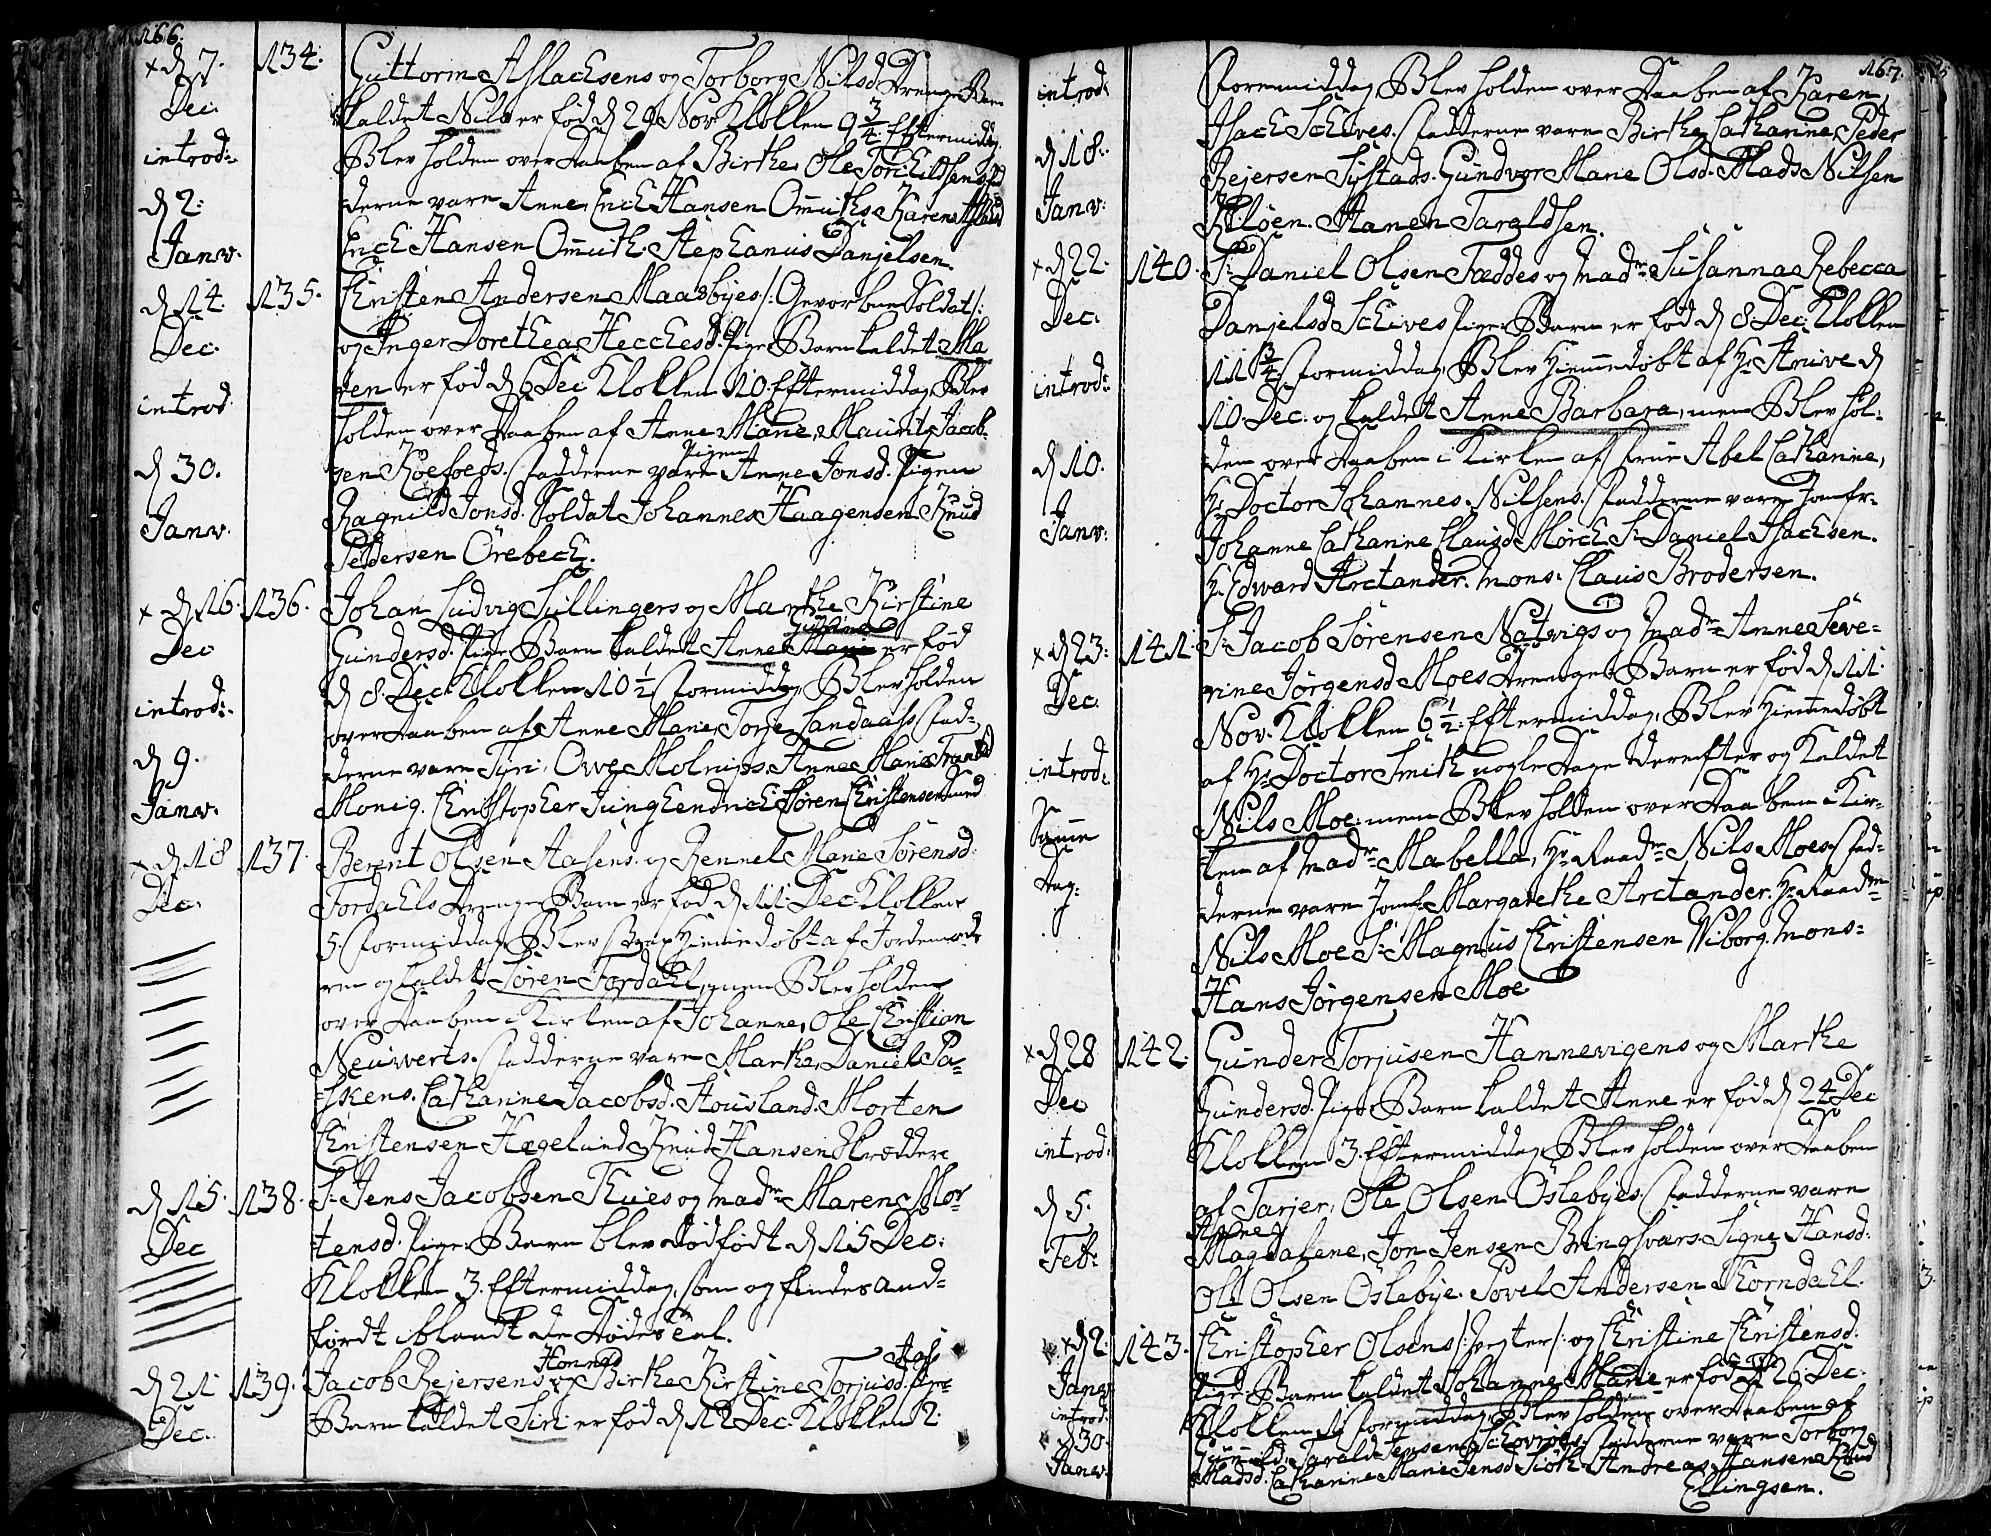 166.
x d 7. Dec. introd: d 2: Janv.
134. Guttorm Aslachsens og Torborg Nilsd Drenge Barn
kaldet Nils er fød d 29 Nov Klokken 9 3/4 Eftermiddag
Blev holden over Daaben af Birthe, Ole Torchildsens. Fad
derne vare Anne, Erich Hansen Omuths. Karen Aslaksd
Erich Hansen Omuth. Stephanus Danjelsen.
d 14. Dec. introd. d 30. Janv.
135. Christen Andersen Maasbyes /: Gevorben Soldat :/
og Inger Dorethea Hecchesd. Pige Barn kaldet Ma
ren er fød d 6 Dec Klokken 10. Eftermiddag, Blev
holden over Daaben af Anne Marie, Maurits Jacob-
sen Koefoeds. Fadderne vare Pigen Anne Jonsd. Pigen
Ragnild Jonsd. Soldat Johannes Haagensen Knud
Pedersen Örebeck.
x d 16. Dec introd: d 9. Janv.
136. Johan Ludvig Lullingers og Marthe Kirstine
Gundersd. Pige Barn kaldet Anne er fød
d 8. Dec. Klokken 10 1/2 Formiddag, Blev holden
over Daaben af Anne Marie, Torje Landaass. Fad-
derne vare Siri, Owe Molnips. Anne Marie
Monig. Christopher Jung Hendrich Søren Christensen Smed
x d 18 Dec.
137. Berent Olsen Aasens. og Rennel Marie Sørensd:
Fordahls Drenge Barn er fød d 11. Dec Klokken
5. Formiddag Blev Hiemmedøbt af Jordemode
ren og kaldet Søren Fordahl, men Blev holden
over Daaben i Kirken af Johanne, Ole Christian
Neuwerts. Fadderne vare Marthe, Daniel Pa-
Catharine Jacobsd. Housland. Morten
Christensen Hægelund Knud Hansen Skreddere
d 15. Dec
138. Sr Jens Jacobsen Thues og Madme Maren Mor
tensd. Pige Barn blev dødfødt d 15 Dec:
Klokken 3. Eftermiddag, som og findes and-
førdt iblandt de Dødes Tal.
d 21 Dec.
139. Jacob Rejersens Honnes og Birthe Kirstine Torjusd. Pige
Barn kaldet Siri er fød d 12 Dec. Klokken 2
167.
introd: d 18: Janv:
Formiddag, Blev holden over Daaben af Karen,
Isach Scheves. Fadderne vare Birthe Catharine, Peder
Rejersen Systads. Gundvor Marie Olsd. Mads Nilsen
Kiløen. Hanen Taraldsen.
x d 22. Dec. introd: d 10. Janv:
140. Sr Daniel Olsen Fæddes og Madme Susanna Rebecca
Danjelsd Schives Pige Barn er fød d 8. Dec. Klokken
11 3/4 Formiddag, Blev Hiemmedøbt af Hr Struve d
10. Dec. og kaldet Anne Barbara, men Blev hol-
den over Daaben i Kirken af Frue Abel Catharine,
Hr Doctor Johannes Nilsens. Fadderne vare Jomfr.
Johanne Catharine Clausd Mørch Sr Daniel Isachsen.
Hr Edward Arctander. Mons: Claus Brodersen.
x d 23: Dec. introd: Samme Dag:
141. Sr Jacob Sørensen Natvigs og Madme Anne Seve-
rine Jørgensd Moes Drenge Barn er fød d 11.
Nov. Klokken 6 1/2. Eftermiddag, Blev Hiemmedøbt
af Hr Doctor Smith nogle Dage derefter og kaldet
Nils Moe, men Blev holden over Daaben i Kir-
ken af Madme Mabella, Hr Raadm Nils Moes. Fad-
derne vare Jomf. Margarethe Arctander. Hr Raadm
Nils Moe Sr Magnus Christensen Viborg. Mons:
Hans Jørgensen Moe
x d 28 Dec introd: d 5. Feb:
142. Gunder Torjusen Hannevigens og Marthe
Gundersd. Pige Barn kaldet Anne er fød d 24 Dec
Klokken 3. Eftermiddag, Blev holden over Daaben
af Tarjer, Ole Olsen Öslebyes. Fadderne vare
Anne Magdalene, Jon Jensen Bringsvärs Signe Hansd:
Ole Olsen Öslebye. Povel Andersen Thorndahl.
x d 2. Janv. introd: d 30. Janv.
143. Christopher Olsens /: :/ og Christine Christensd:
Pige Barn kaldet Johanne Marie er fød d 26 Dec:
Klokken Formiddag, Blev holden over Daaben af
Gunnild, Tarald Jensen Fadderne vare Torborg
Madsd. Catharine Marie Jensd Andreas Hansen Knud
Ellingsen.